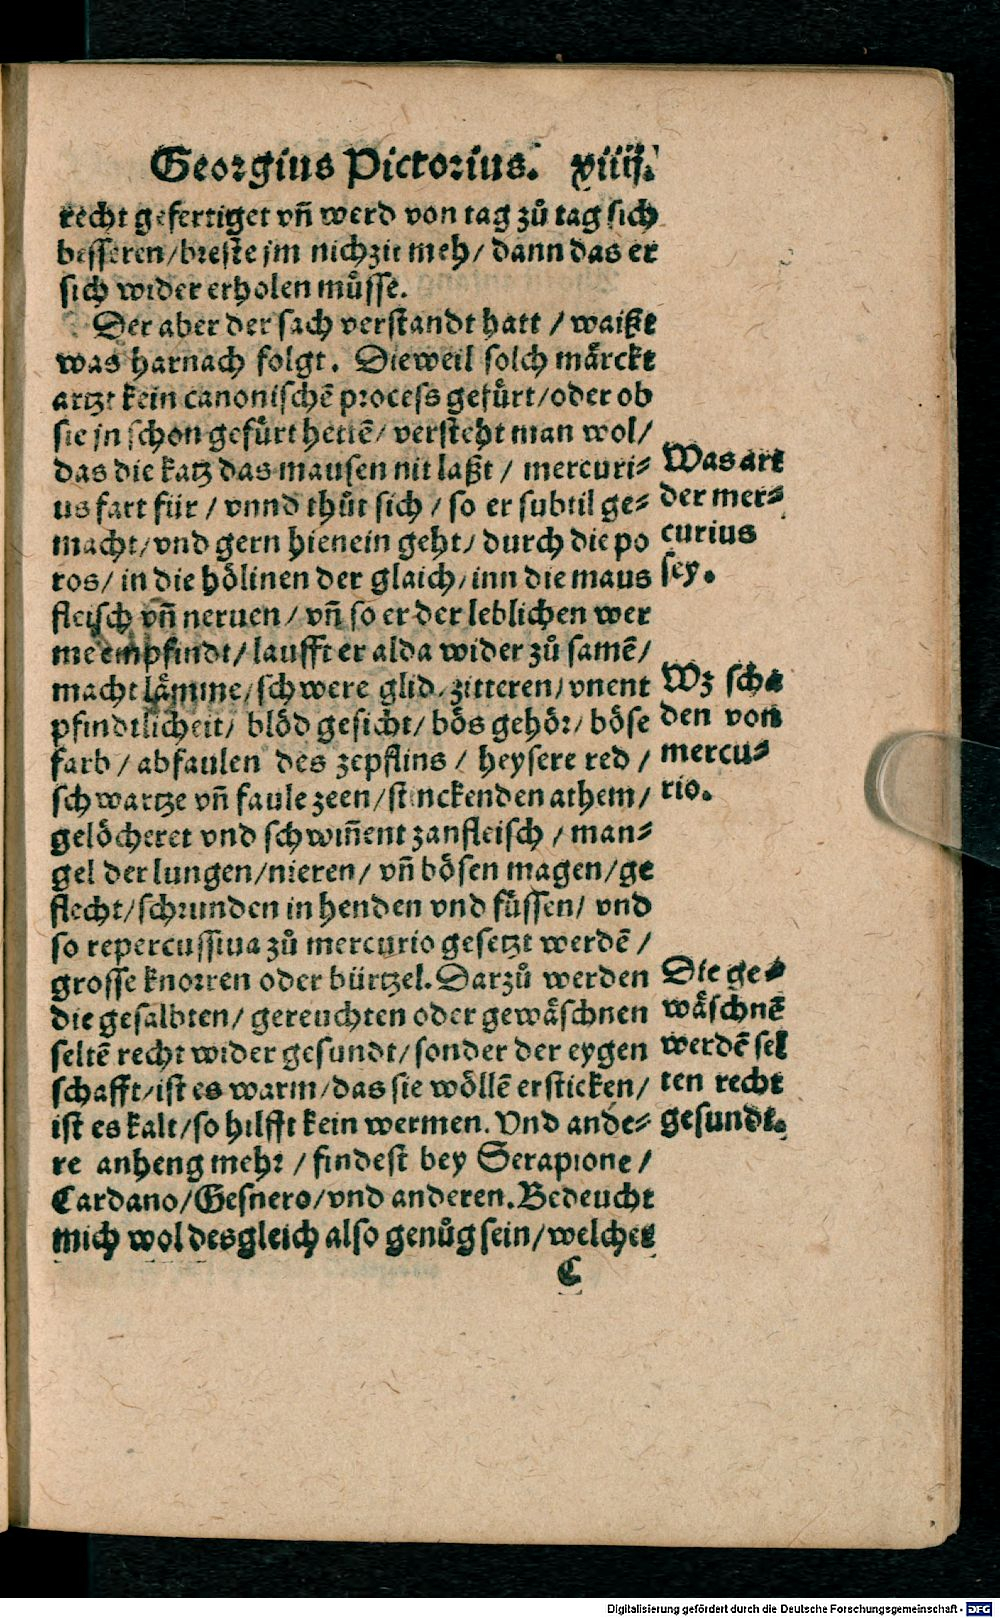 Georgius Pictorius. xiiij.
recht gefertiget vñ werd von tag zů tag sich
besseren/breste jm nichzit meh/ dann das er
sich wider erholen müsse.
Der aber der sach verstandt hatt / waißt
was harnach folgt. Dieweil solch märckt
artzt kein canonischē process gefürt/oder ob
sie jn schon gefürt hettē/ versteht man wol/
das die katz das mausen nit laßt / mercuri-
us fart für / vnnd thůt sich / so er subtil ge-
macht/vnd gern hienein geht/ durch die po
ros/ in die hölinen der glaich/ inn die maus
fleisch vñ neruen/ vñ so er der leblichen wer
me empfindt/ laufft er alda wider zů samē/
macht lämme/schwere glid/zitteren/vnent
pfindtlicheit/ blöd gesicht/ bös gehör/ böse
farb / abfaulen des zepflins / heysere red /
schwartze vñ faule zeen/stinckenden athem/
gelöcheret vnd schwiñent zanfleisch / man-
gel der lungen/nieren/ vñ bösen magen/ge
flecht/schrunden in henden vnd füssen/ vnd
so repercussiua zů mercurio gesetzt werdē /
grosse knorren oder bürtzel. Darzů werden
die gesalbten/ gereuchten oder gewäschnen
seltē recht wider gesundt/sonder der eygen
schafft/ist es warm/das sie wöllē ersticken/
ist es kalt/so hilfft kein wermen. Vnd ande-
re anheng mehr / findest bey Serapione /
Cardano/Gesnero/vnd anderen. Bedeucht
mich wol desgleich also genůg sein/welcher
C
Was art
der mer-
curius
sey.
Wz scha
den von
mercu-
rio.
Die ge-
wäschnē
werdē sel
ten recht
gesundt.
Digitalisierung gefördert durch die Deutsche Forschungsgemeinschaft - DFG